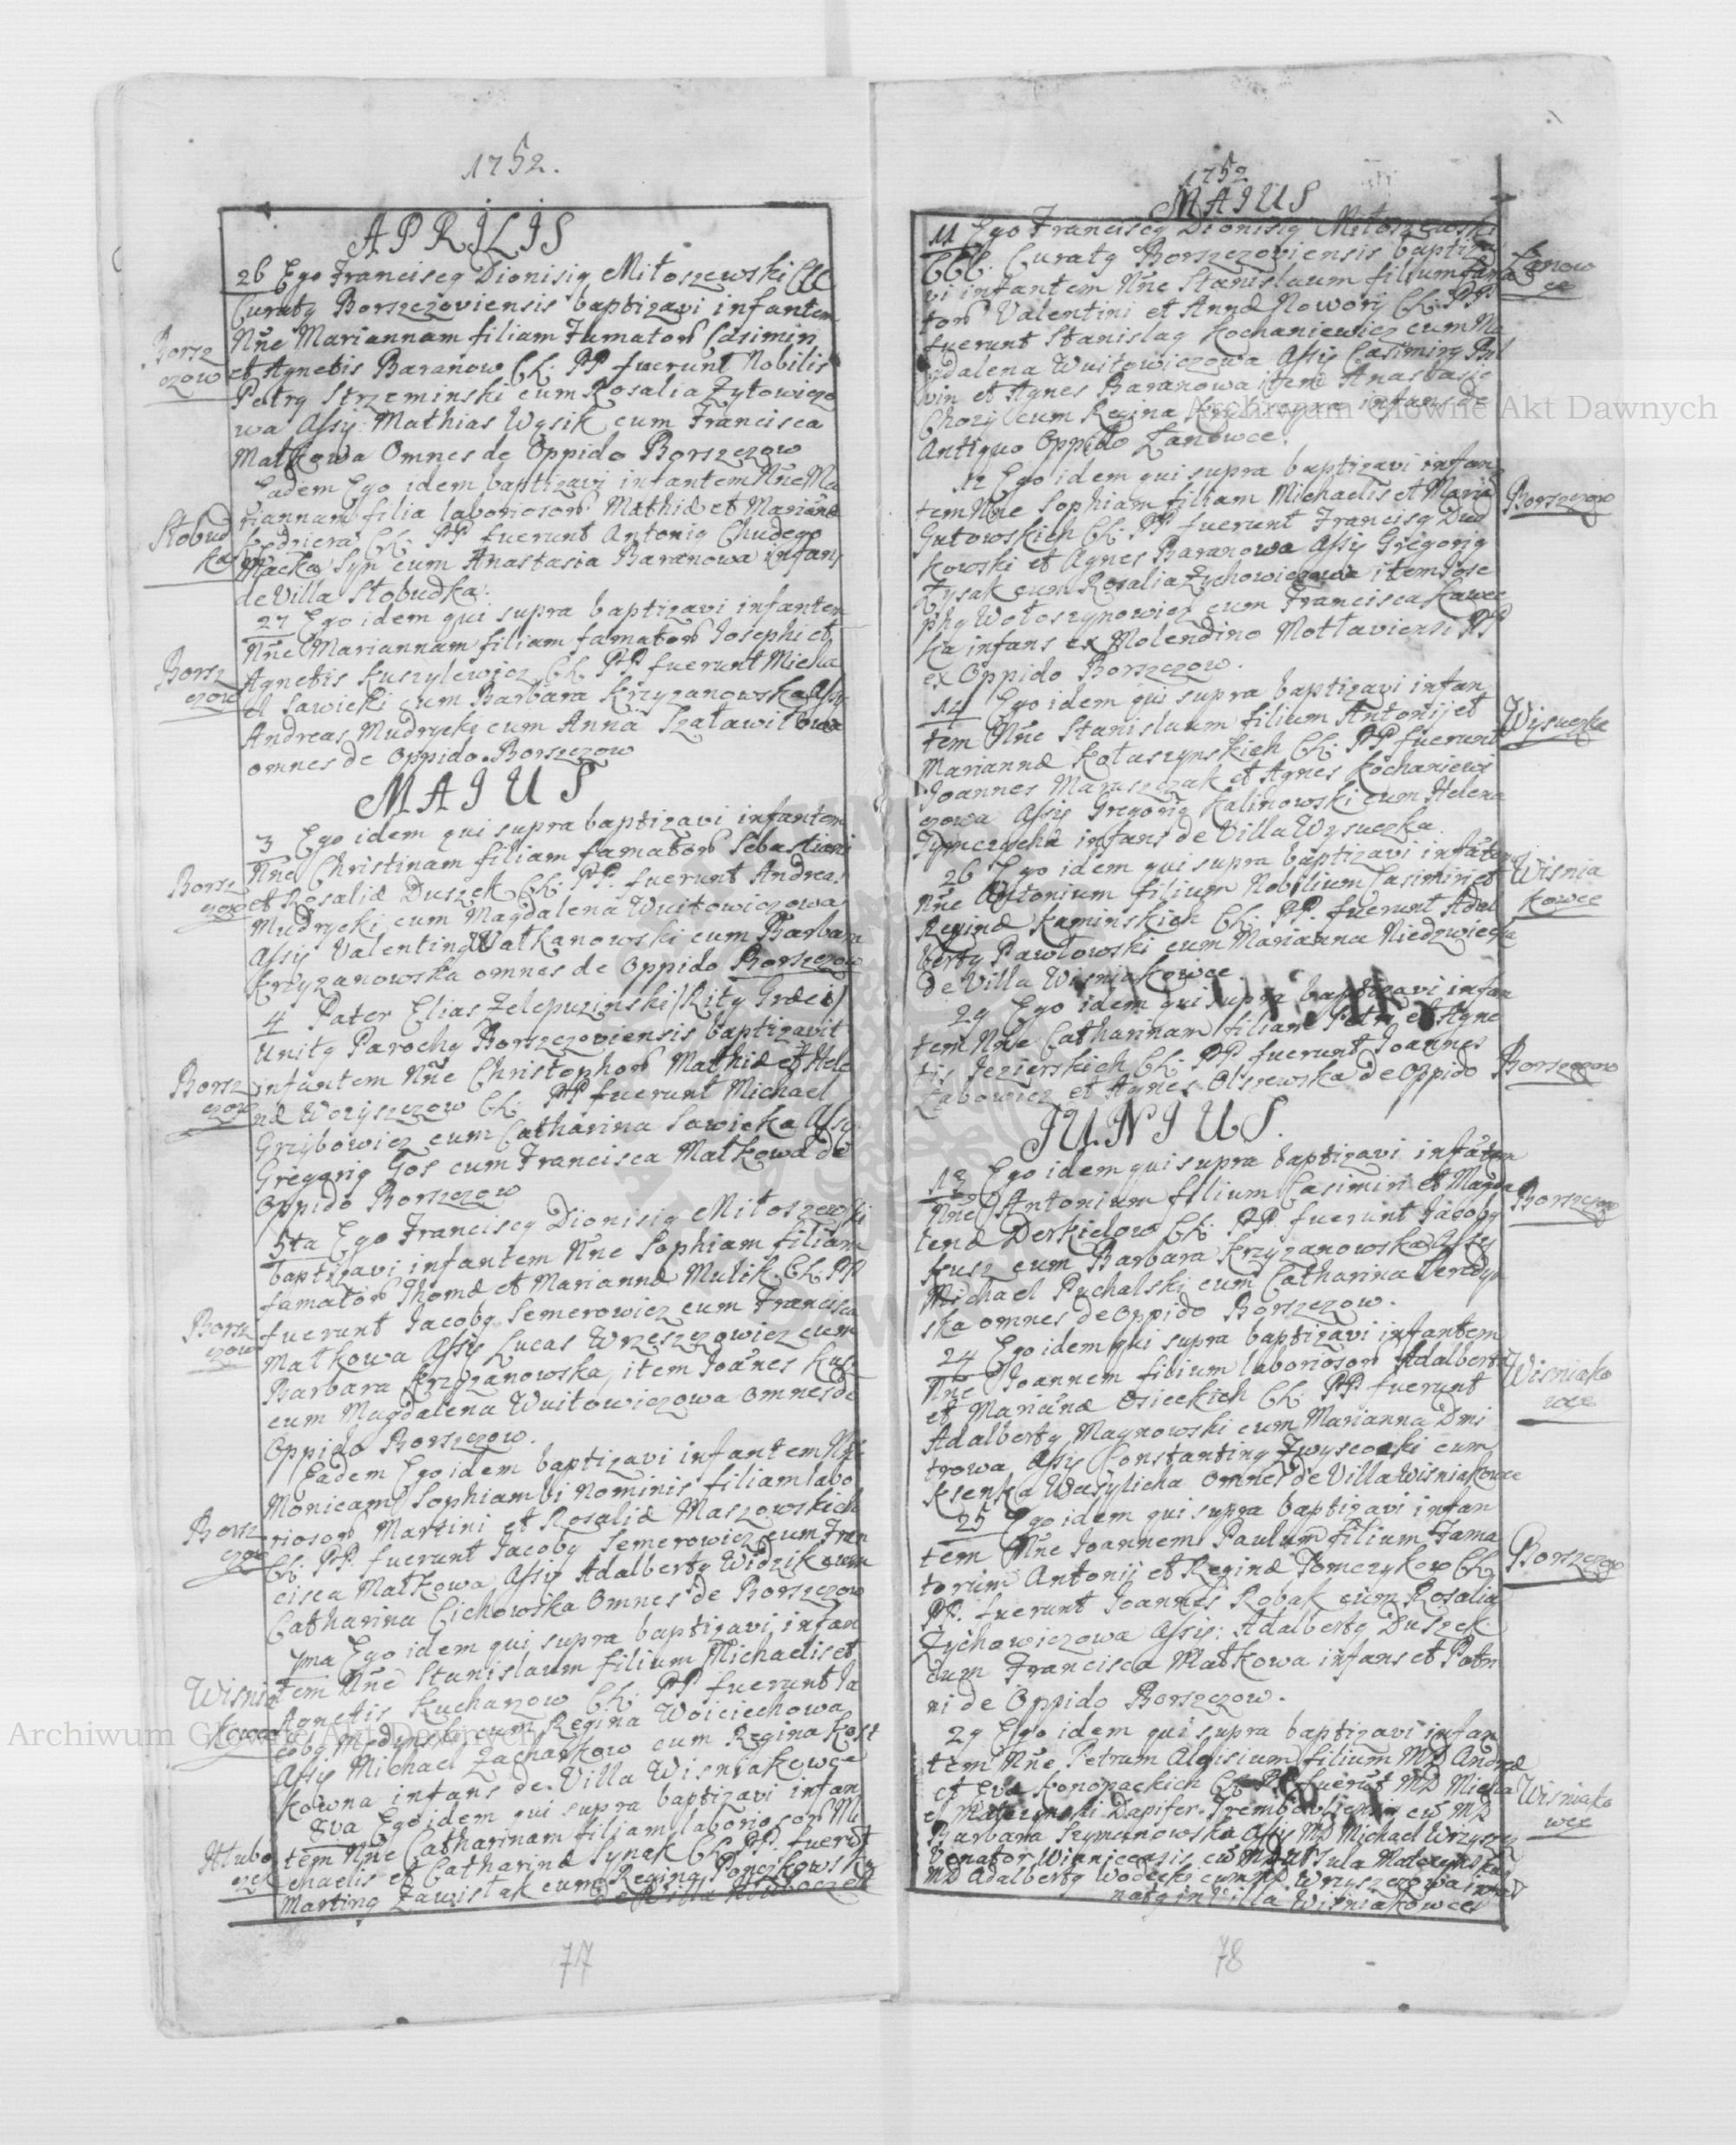 1752.
APRILIS
26 Ego Franciscq Dionisiq Miłoszewski CCC
Curatq Borszczoviensis baptizavi infantem
Nñe Mariannam filiam Famator Casimiri
Borsz
czow
et Agnetis Baranow CL. PP fuerunt Nobilis
Petrq Strzeminski cum Rosalia Zytowiczo
wa Assÿ: Mathias Wąsik cum Francisca
Małkowa Omnes de Oppido Borszczow
Eadem Ego idem baptizavi infantem Nñe Ma
riannam filia laborioson Mathiæ et Mariañæ
Stobud
ka
CL. PP fuerunt Antoniq Chudego
Macka Syn cum Anastasia Baranowa infans
de Villa Stobudka.
27 Ego idem qui supra baptizavi infantem
Nñe Mariannam filiam famator Josephi et
Borsz
czow
Agnetis Kuszylewicz CL. PP fuerunt Micha
el Sawicki cum Barbara Krzyzanowska Assÿ
Andreas Mudrycki cum Anna Szaławiłowa
omnes de Oppido Borszczow
MAIUS
3 Ego idem qui supra baptizavi infantem
Nñe Christinam filiam famator Sebastiani
Borsz
czow
et Rosaliæ Duszek CL. PP. fuerunt Andreas
Mudrycki cum Magdalena Wuitowiczowa
Assÿ Valentinq Watkanowski cum Barbara
Krzyzanowska omnes de Oppido Borszczow
4 Pater Elias Zelepuzinski Ritq Græci
Unitq Parochq Borszczoviensis baptizavit
Borsz
czow
infantem Nñe Christophor Mathiæ et Hele
næ Woryszczow CL. PP fuerunt Michael
Grzybowicz cum Catharina Sawicka Assÿ
Gregoriq Gos cum Francisca Małkowa de
Oppido Borszczow
5ta Ego Franciscq Dionisiq Miłoszewski
baptizavi infantem Nñe Sophiam filiam
famator Thomæ et Mariannæ Mulik CL. PP
Borsz
czow
fuerunt Jacobq Semerowicz cum Francisca
Małkowa Assÿ Lucas Wrzeszczowicz cum
Barbara Krzyzanowska, item Joañes Kusz
cum Magdalena Wuitowiczowa Omnes de
Oppido Borszczow.
Eadem Ego idem baptizavi infantem Nñe
Monicam Sophiam bi Nominis filiam labo
Borsz
czow
rioson Martini et Rosaliæ Maszowskich
CL. PP. fuerunt Jacobq Semerowicz cum Fran
cisca Małkowa Assÿ Adalbertq Widzik cum
Catharina Cichowska Omnes de Borszczow
7ma Ego idem qui supra baptizavi infan
tem Nñe Stanislaum filium Michaelis et
Wisnia
kowce
Agnetis Kucharzow CL. PP fuerunt Ja
cobq Medynski cum Regina Woiciechowa
Assÿ Michael Zacharkow cum Regina Kost
kowna infans de Villa Wisniakowce
8va Ego idem qui supra baptizavi infan
tem Nñe Catharinam filiam laborioson Mi
Hłubo
czek
chaelis et Catharinæ Synak CL. PP. fuerut
Martinq Zawislak cum Regina Ponczkowska
de Villa Hłuboczek
77
1752
MAIUS
11 Ego Franciscq Dionisiq Miłoszewski
CCC. Curatq Borszczoviensis baptiza
vi infantem Nñe Stanislaum filium fama
Łanow
ce
tor Valentini et Annæ Nowory CL. PP
fuerunt Stanislaq Kochaniewicz cum Ma
gdalena Wuitowiczowa Assÿ Casimirq Bil
win et Agnes Baranowa item Anastasiq
Chozy cum Regina infans de
Antiquo Oppido Łanowce.
12 Ego idem qui supra baptizavi infan
tem Nñe Sophiam filiam Michaelis et Mariæ
Borszczow
Gutowskich CL. PP fuerunt Francisq Dud
kowski et Agnes Baranowa Assÿ Gregoriq
Łysak cum Rosalia Zychowiczowa item Jose
phq Wołoszynowicz cum Francisca Kawec
ka infans ex Molendino Motlaviensi PP
ex Oppido Borszczow.
14 Ego idem qui supra baptizavi infan
tem Nñe Stanislaum filium Antonij et
Wysuczka
Mariannæ Kołuszynskich CL. PP fuerunt
Joannes Maruszczak et Agnes Kochaniewi
czowa Assÿ Gregoriq Kalinowski cum Helena
Tymczycha infans de Villa Wysuczka.
26 Ego idem qui supra baptizavi infãtem
Wisnia
kowce
Nñe Antonium filium Nobilium Casimiri et
Reginæ Kaminskich CL. PP. fuerunt Adal
bertq Pawłowski cum Marianna Niedzwiecka
de Villa Wisniakowce
29 Ego idem qui supra baptizavi infan
tem Nñe Catharinam filiam Petri et Agne
tis Jezierskich CL. PP fuerunt Joannes
Borszczow
Łabowicz et Agnes Olszewska de Oppido
JUNIUS.
13 Ego idem qui supra baptizavi infãtem
Nñe Antonium filium Casimiri et Magda
Borszczow
lenæ Derkiczow CL. PP. fuerunt Jacobq
Kusz cum Barbara Krzyzanowska Assÿ
Michael Puchalski cum Catharina Weredyn
ska omnes de Oppido Borszczow.
24 Ego idem qui supra baptizavi infantem
Nñe Joannem filium laborioson Adalberti
Wisniako
wce
et Mariañæ Osieckich CL. PP. fuerunt
Adalbertq Magnowski cum Marianna Dmi
trowa Assÿ Konstantinq Zwysocki cum
Ksenka Wasylicha Omnes de Villa Wisniakowce
25 Ego idem qui supra baptizavi infan
tem Nñe Joannem Paulum filium Fama
Borszczow
torum Antonij et Reginæ Tomczykow CL.
PP. fuerunt Joannes Robak cum Rosalia
Zychowiczowa Assÿ: Adalbertq Duszek
cum Francisca Małkowa infans et Patri
ni de Oppido Borszczow.
29 Ego idem qui supra baptizavi infan
tem Nñe Petrum Aloisium filium MD Andreæ
et Eva Konopackich CL. PP. fuerut MD Micha
Wisniako
wce
el Matczynski Dapifer Trembowliensis cu MD
Barbara Szymanowska Assÿ MD Michael Wrzyszcz
Venator Winnicensis cu MD Ursula Matczynska
MD Adalbertq Wodecki cum MD Wrzyszczowa infans
natq in Villa Wisniakowce
78
Archiwum Główne Akt Dawnych
Archiwum Główne Akt Dawnych